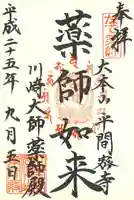 奉拝
大本山平間寺
薬師如来
川崎大師薬師殿
平成二十五年九月五日